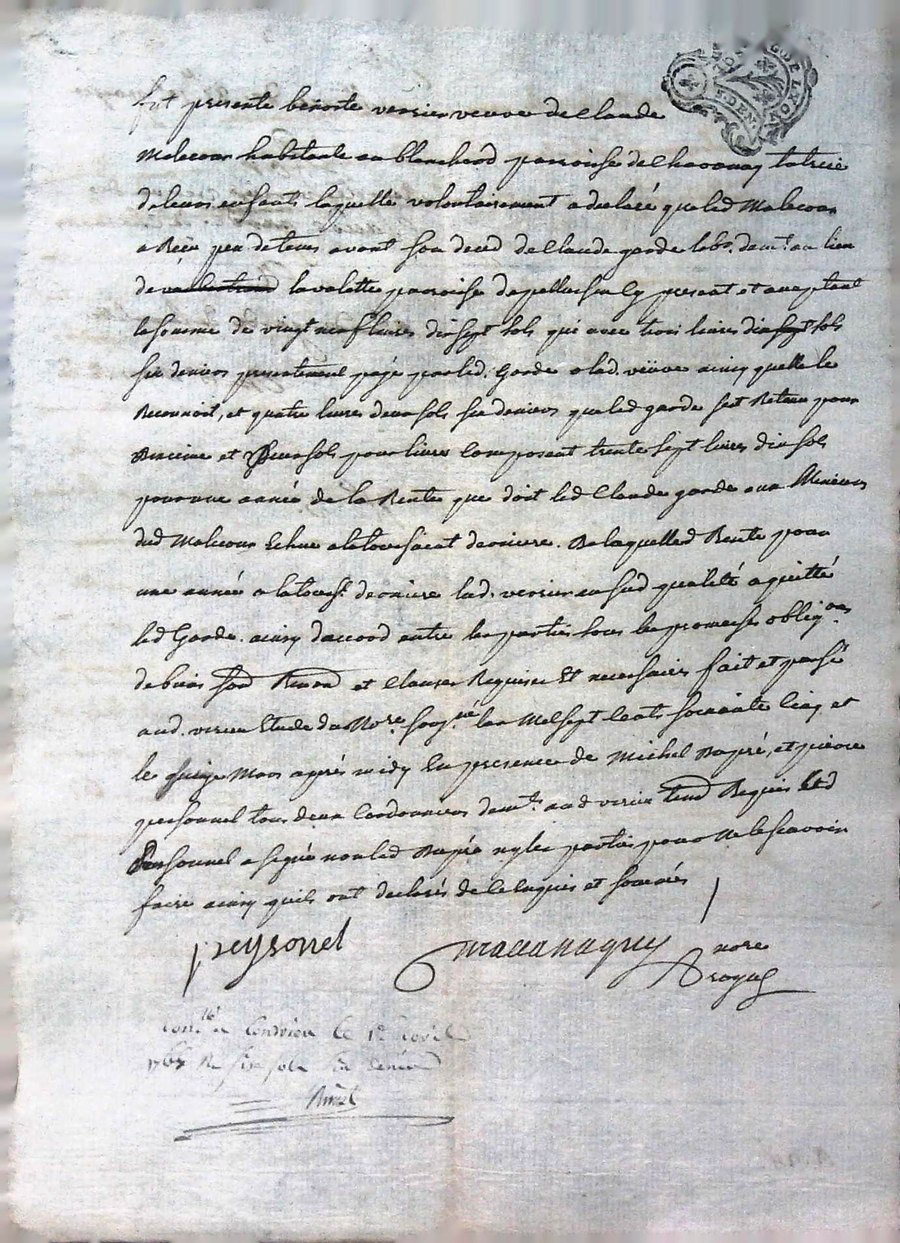 fut presente benoite verrier veuve de Claude
Malecour habitante au blanchard parroisse de Chavanay tutrice
de leurs enfants laquelle volontairement a declaré que led Malecour
a Recu peu de tems avant son deced de Claude garde labr. demt. au lieu
de lavalette parroisse de pellussin Cy present et acceptant
la somme de vingt neuf livres dix sept sols qui avec trois livres dix sept sols
six deniers presentement payé par led. Garde a lad. veuve ainsy quelle le
Reconnoit, et quatre livres deux sols six deniers que led garde sest Retenu pour
vincieme et sols pour livres Composent trente sept livres dix sols
pour une année de la Rente que doit led Claude garde aux
dud Malecour Echue a la toussaint derniere. De laquelled Rente pour
une année a la touss. derniere lad. verrier en sad qualité a quitté
led Garde. ainsy daccord entre les parties sous les promesses obligaons
de biens et Clauses Requises Et necessaires fait et passé
aud. verin Etude du Nore. Soussigné lan Mil sept Cents soixante Cinq et
le quinze Mars apres midy En presence de Michel Dupré, et pierre
peyssonnel tous deux Cordonniers demts. aud verin Requis led
Peyssonnel a signé non led Dupré ny les parties pour ne le scavoir
faire ainsy quils ont declarés de Ce Enquis et sommés
peyssonel nore
royal
Conlé a Condrieu le 1er avril
1765 R six sols six denier